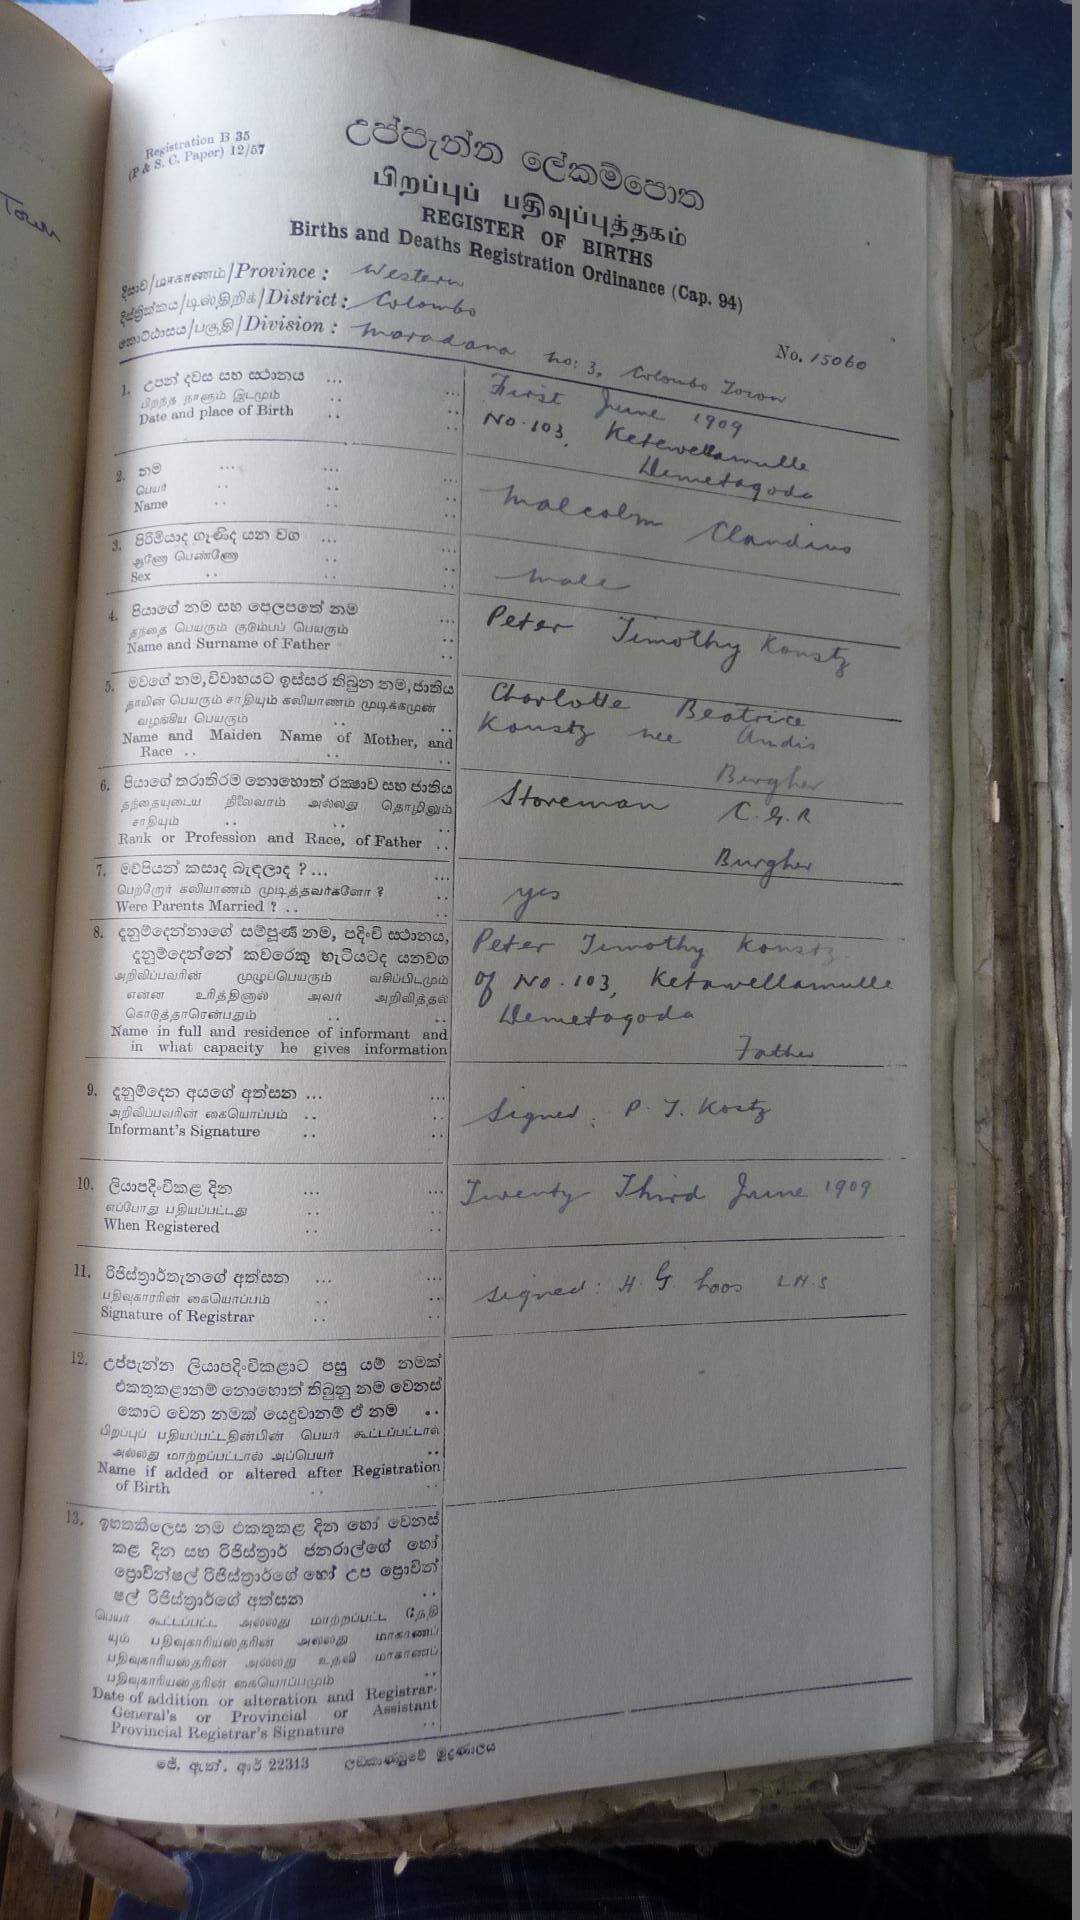 Town
Registration B 35
(P & S. C. Paper) 12/57
උප්පැන්න ලේකම්පොත
பிறப்புப் பதிவுப்புத்தகம்
REGISTER OF BIRTHS
Births and Deaths Registration Ordinance (Cap. 94)
දිසාව/மாகாணம்/Province : Western
දිස්ත්‍රික්කය/டிஸ்திறிக்/District : Colombo
කොට්ඨාසය/பகுதி/Division : Maradana no: 3, Colombo Town
No. 15060
1. උපන් දවස සහ ස්ථානය ... ...
பிறந்த நாளும் இடமும் .. ..
Date and place of Birth .. ..
First June 1909
No. 103, Ketawellamulle
Demetagoda
2. නම ... ... ...
பெயர் .. .. ..
Name .. .. ..
Malcolm Claudius
3. පිරිමියාද ගැණිද යන වග ... ...
ஆணோ பெண்ணோ .. ..
Sex .. .. ..
Male
4. පියාගේ නම සහ පෙලපතේ නම ...
தந்தை பெயரும் குடும்பப் பெயரும் ..
Name and Surname of Father ..
Peter Timothy Konstz
5. මවගේ නම, විවාහයට ඉස්සර තිබුන නම, ජාතිය
தாயின் பெயரும் சாதியும் கலியாணம் முடிக்கமுன்
வழங்கிய பெயரும் .. ..
Name and Maiden Name of Mother, and
Race .. .. ..
Charlotte Beatrice
Konstz nee Andis
Burgher
6. පියාගේ තරාතිරම නොහොත් රක්‍ෂාව සහ ජාතිය
தந்தையுடைய நிலைவரம் அல்லது தொழிலும்
சாதியும் .. .. ..
Rank or Profession and Race, of Father ..
Storeman C.G.R
Burgher
7. මව්පියන් කසාද බැඳලාද ? ... ...
பெற்றோர் கலியாணம் முடித்தவர்களோ ? ..
Were Parents Married ? .. ..
yes
8. දැනුම්දෙන්නාගේ සම්පූර්ණ නම, පදිංචි ස්ථානය,
දැනුම්දෙන්නේ කවරෙකු හැටියටද යනවග
அறிவிப்பவரின் முழுப்பெயரும் வசிப்பிடமும்
என்ன உரித்தினால் அவர் அறிவித்தல்
கொடுத்தாரென்பதும் .. ..
Name in full and residence of informant and
in what capacity he gives information
Peter Timothy Konstz
of No. 103, Ketawellamulle
Demetagoda
Father
9. දැනුම්දෙන අයගේ අත්සන ... ...
அறிவிப்பவரின் கையொப்பம் .. ..
Informant's Signature .. ..
Signed: P. T. Kostz
10. ලියාපදිංචිකළ දින ... ...
எப்போது பதியப்பட்டது .. ..
When Registered .. ..
Twenty Third June 1909
11. රිජිස්ත්‍රාර්තැනගේ අත්සන ... ...
பதிவுகாரரின் கையொப்பம் .. ..
Signature of Registrar .. ..
signed: H. G. L.M.S
12. උප්පැන්න ලියාපදිංචිකළාට පසු යම් නමක්
එකතුකළානම් නොහොත් තිබුනු නම වෙනස්
කොට වෙන නමක් යෙදුවානම් ඒ නම ..
பிறப்புப் பதியப்பட்டதின்பின் பெயர் கூட்டப்பட்டால்
அல்லது மாற்றப்பட்டால் அப்பெயர் ..
Name if added or altered after Registration
of Birth .. ..
13. ඉහතකිලෙස නම එකතුකළ දින හෝ වෙනස්
කළ දින සහ රිජිස්ත්‍රාර් ජනරාල්ගේ හෝ
ප්‍රොවින්ෂල් රිජිස්ත්‍රාර්ගේ හෝ උප ප්‍රොවින්
ෂල් රිජිස්ත්‍රාර්ගේ අත්සන ..
பெயர் கூட்டப்பட்ட அல்லது மாற்றப்பட்ட தேதி
யும் பதிவுகாரியஸ்தரின் அல்லது மாகாணப்
பதிவுகாரியஸ்தரின் அல்லது உதவி மாகாணப்
பதிவுகாரியஸ்தரின் கையொப்பமும் ..
Date of addition or alteration and Registrar-
General's or Provincial or Assistant
Provincial Registrar's Signature ..
ජේ. ඇන්. ආර් 22313 ලඞකාණ්ඩුවේ මුද්‍රණාලය